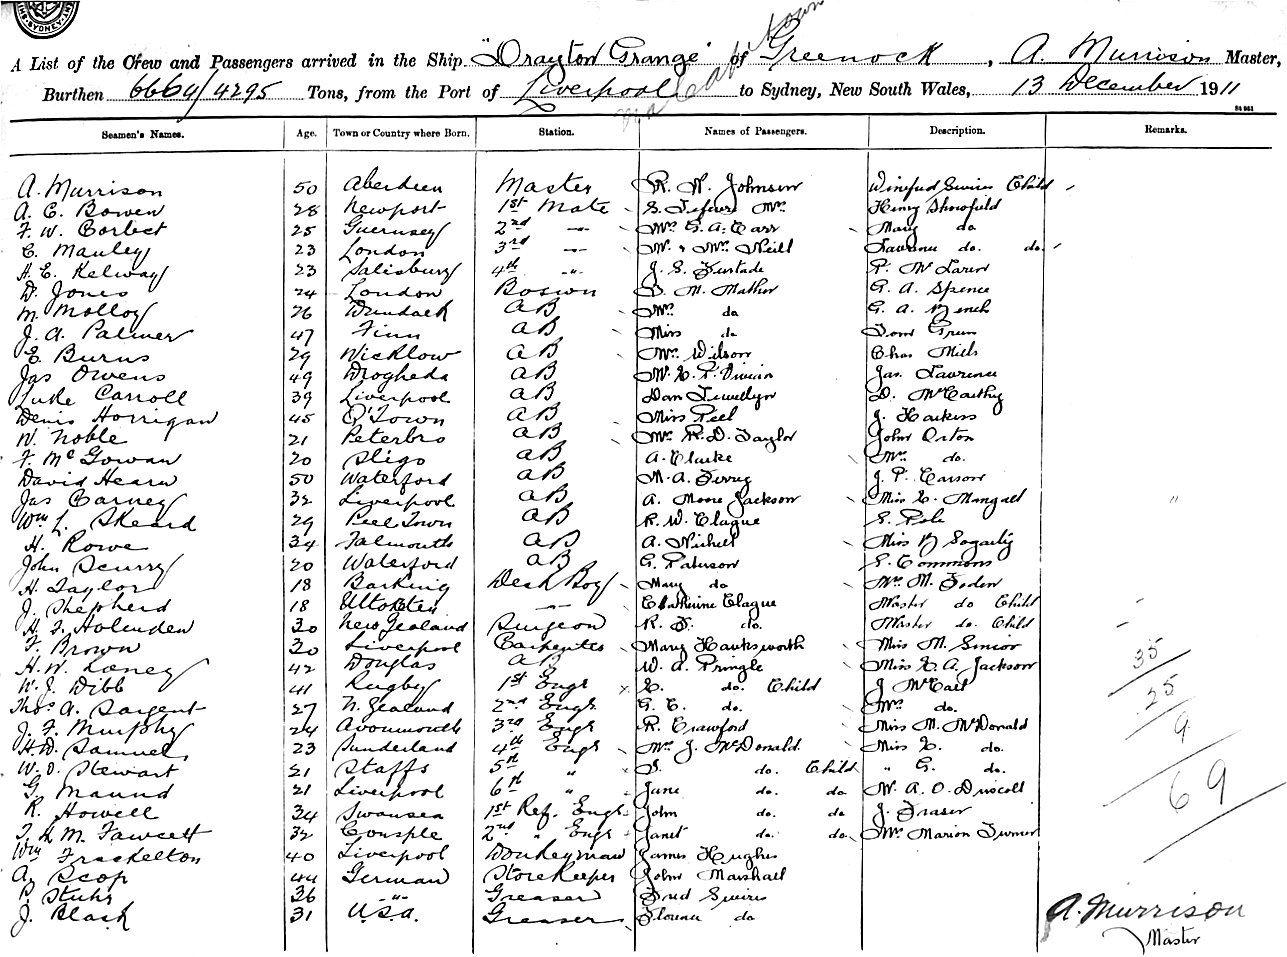 A List of the Crew and Passengers arrived in the Ship "Drayton Grange" of Greenock, A. Murrison Master,
Burthen 6664/4295 Tons, from the Port of Liverpool via Cape Town to Sydney, New South Wales, 13 December 1911
Seamen's Names. Age. Town or Country where Born. Station. Names of Passengers. Description. Remarks.
A. Murrison 50 Aberdeen Master R. N. Johnson Child
A. E. Bowen 28 Newport 1st Mate Henry
F. W. Corbet 25 Guernsey 2nd -"- Mrs. G. A. Carr Mary do
C. Manley 23 London 3rd -"- W. & Mrs. Neill do. do.
H. E. Kelway 23 Salisbury 4th -"- J. S. Furtado P. McLaren
D. Jones 24 London Bosun D. M. Mather G. A. Spence
M. Molloy 26 Dundalk AB Mrs. do G. A.
J. A. Palmer 47 Finn AB Miss do Tom Green
E. Burns 29 Wicklow AB Mrs. Wilson Chas
Jas Owens 49 Drogheda AB Jas. Lawrence
Luke Carroll 39 Liverpool AB Dan Llewellyn D. McCarthy
Denis Horrigan 45 Q'Town AB Miss Peel J. Harkess
W. Noble 21 Peterbro AB Mrs. R. D. Taylor John Orton
F. McGowan 20 Sligo AB A. Clarke Mrs. do.
David Hearn 50 Waterford AB J. P. Carson
Jas Carney 32 Liverpool AB A. Moore Jackson Miss E. Mangall "
Wm L. Skeard 29 Peel Town AB R. W. Clague E. Pole
H. Rowe 34 Falmouth AB A. Miss
John Scurry 20 Waterford AB G. Paterson E. Commons
H. Taylor 18 Barking Deck Boy Mary do Mrs. M. Foden
J. Shepherd 18 -"- Catherine Clague Master do Child
H. F. Holmden 30 New Zealand Surgeon R. F. do. Master do. Child
F. Brown 30 Liverpool Carpenter Mary Hawksworth Miss M. Senior
H. W. Laney 42 Douglas AB W. A. Pringle Miss E. A. Jackson
W. J. Dibb 41 Rugby 1st Engr E. do. Child J McCall
Thos A. Sargent 27 N. Zealand 2nd Engr G. E. do. Mrs. do.
J. F. Murphy 24 Avonmouth 3rd Engr R. Crawford Miss M. McDonald
H. W. Samuel 23 Sunderland 4th Engr Mrs. J. McDonald Miss E. do.
W. D. Stewart 21 Staffs 5th " S. do. Child " G. do.
G. Maund 21 Liverpool 6th " June do. do W. A. O. Driscoll
R. Howell 34 Swansea 1st Ref. Engr John do. do J. Fraser
T. H. M. Fawcett 32 2nd " Engr Janet do. do Mrs. Marion Turner
Wm Frackelton 40 Liverpool Donkeyman James Hughes
A. Scop 44 German Storekeeper John Marshall
B. Stuhr 36 -"- Greaser Fred Squires
J. Black 31 U.S.A. Greaser Florence do
35
25
9
69
A. Murrison
Master